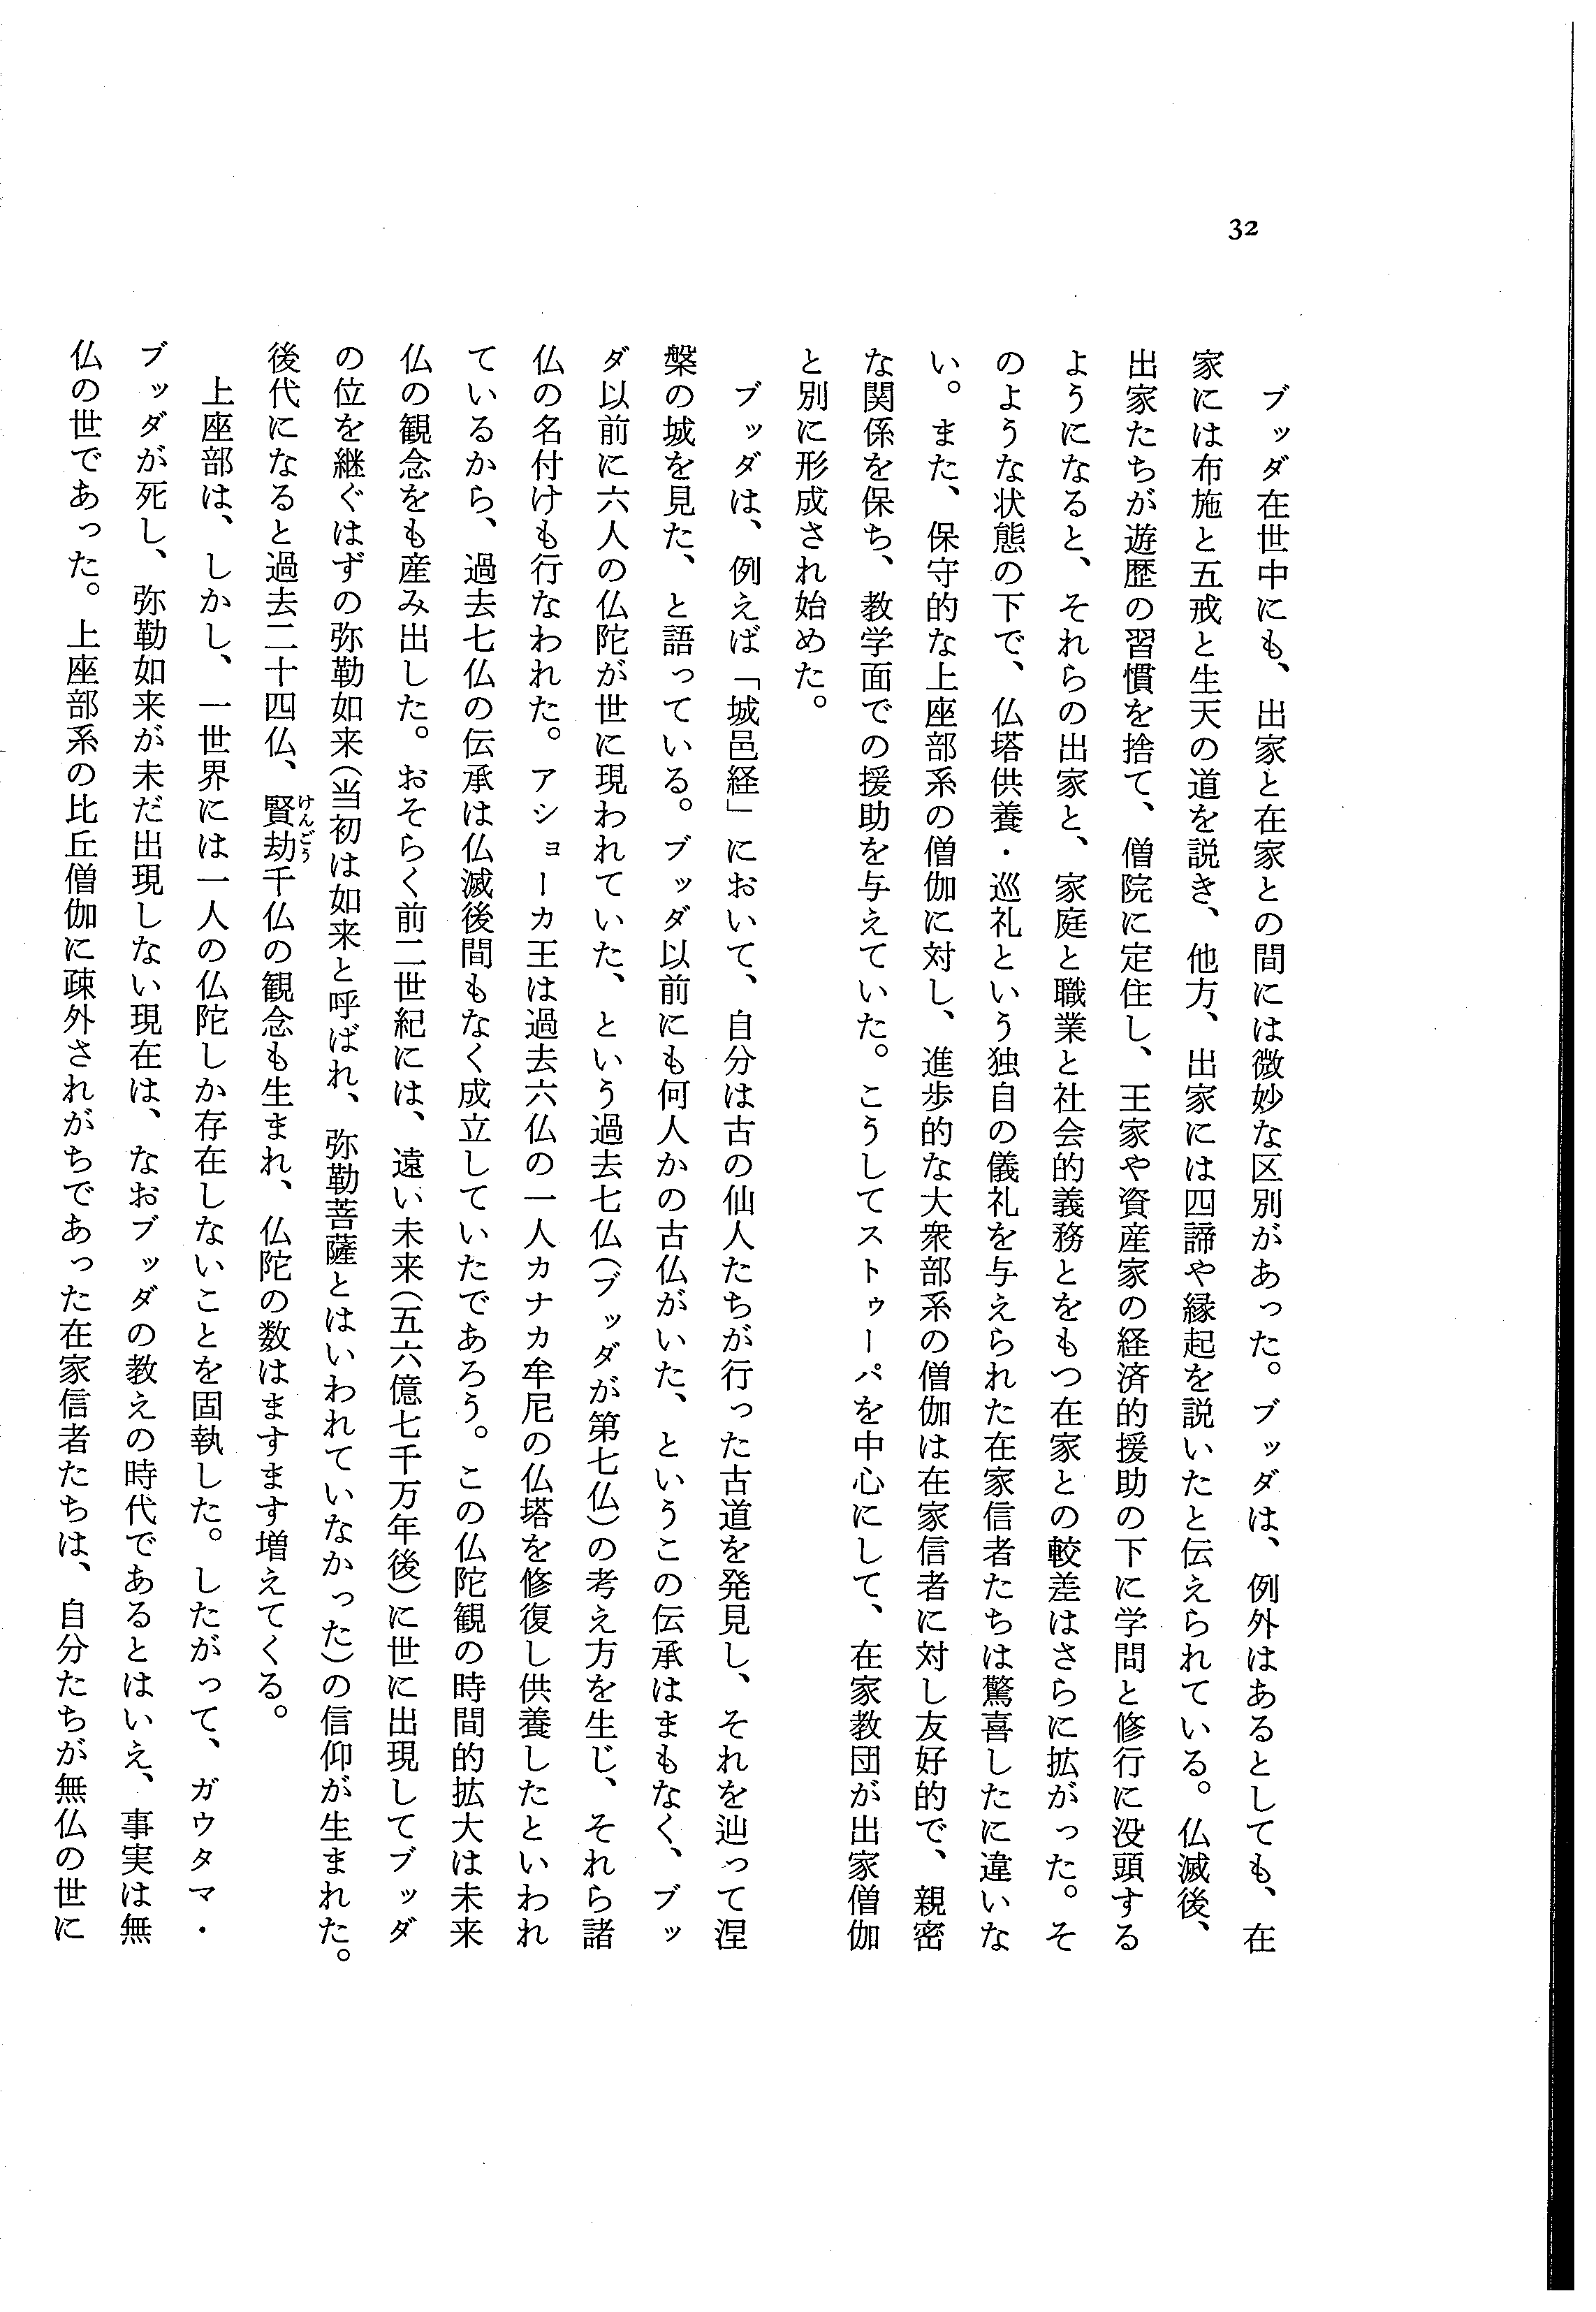 32
ブッダ在世中にも、出家と在家との間には微妙な区別があった。ブッダは、例外はあるとしても、在
家には布施と五戒と生天の道を説き、他方、出家には四諦や縁起を説いたと伝えられている。仏滅後、
出家たちが遊歴の習慣を捨て、僧院に定住し、王家や資産家の経済的援助の下に学問と修行に没頭する
ようになると、それらの出家と、家庭と職業と社会的義務とをもつ在家との較差はさらに拡がった。そ
のような状態の下で、仏塔供養・巡礼という独自の儀礼を与えられた在家信者たちは驚喜したに違いな
い。また、保守的な上座部系の僧伽に対し、進歩的な大衆部系の僧伽は在家信者に対し友好的で、親密
な関係を保ち、教学面での援助を与えていた。こうしてストゥーパを中心にして、在家教団が出家僧伽
と別に形成され始めた。
ブッダは、例えば「城邑経」において、自分は古の仙人たちが行った古道を発見し、それを辿って涅
槃の城を見た、と語っている。ブッダ以前にも何人かの古仏がいた、というこの伝承はまもなく、ブッ
ダ以前に六人の仏陀が世に現われていた、という過去七仏(ブッダが第七仏)の考え方を生じ、それら諸
仏の名付けも行なわれた。アショーカ王は過去六仏の一人カナカ牟尼の仏塔を修復し供養したといわれ
ているから、過去七仏の伝承は仏滅後間もなく成立していたであろう。この仏陀観の時間的拡大は未来
仏の観念をも産み出した。おそらく前二世紀には、遠い未来(五六億七千万年後)に世に出現してブッダ
の位を継ぐはずの弥勒如来(当初は如来と呼ばれ、弥勒菩薩とはいわれていなかった)の信仰が生まれた。
後代になると過去二十四仏、賢劫千仏の観念も生まれ、仏陀の数はますます増えてくる。
けんごう
上座部は、しかし、一世界には一人の仏陀しか存在しないことを固執した。したがって、ガウタマ・
ブッダが死し、弥勒如来が未だ出現しない現在は、なおブッダの教えの時代であるとはいえ、事実は無
仏の世であった。上座部系の比丘僧伽に疎外されがちであった在家信者たちは、自分たちが無仏の世に